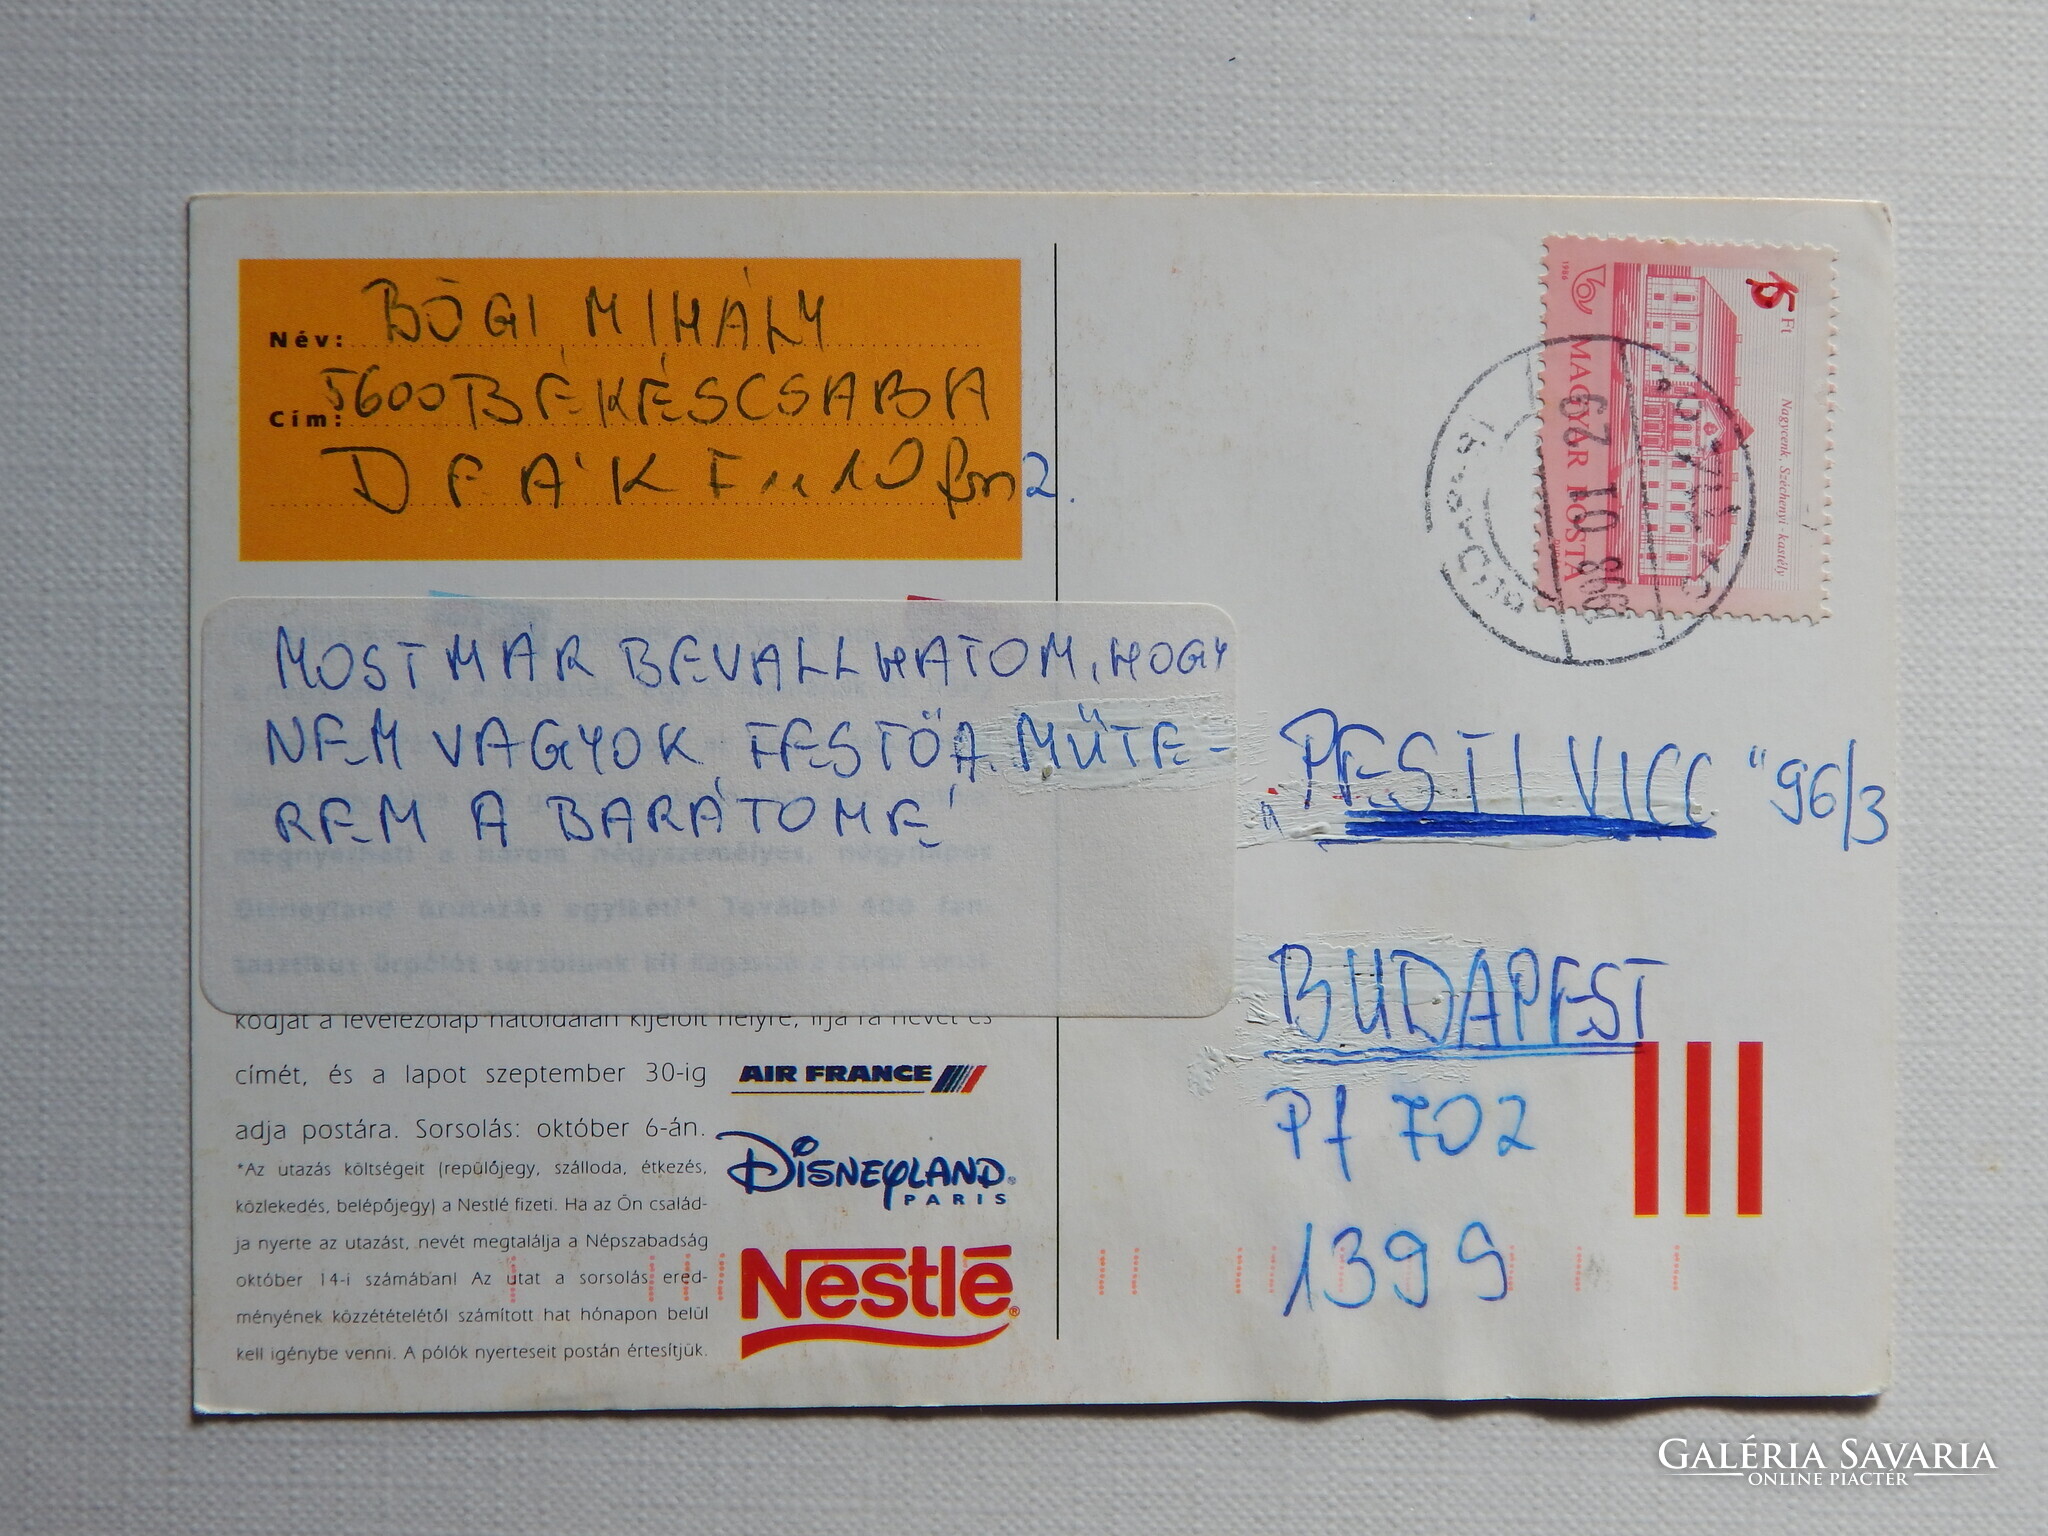 Név: BŐGI MIHÁLY
Cím: 5600 BÉKÉSCSABA
DEÁK F u 10 fsm 2.
MOST MÁR BEVALLHATOM, HOGY
NEM VAGYOK FESTŐ A MŰTE-
REM A BARÁTOMÉ
megnyerheti a három négyszemélyes, négynapos
Disneyland űrutazás egyikét!* További 400 fan-
tasztikus
kódját a levelezőlap hátoldalán kijelölt helyre, írja rá nevét és
címét, és a lapot szeptember 30-ig
adja postára. Sorsolás: október 6-án.
*Az utazás költségeit (repülőjegy, szálloda, étkezés,
közlekedés, belépőjegy) a Nestlé fizeti. Ha az Ön család-
ja nyerte az utazást, nevét megtalálja a Népszabadság
október 14-i számában! Az utat a sorsolás ered-
ményének közzétételétől számított hat hónapon belül
kell igénybe venni. A pólók nyerteseit postán értesítjük.
AIR FRANCE
DISNEYLAND
PARIS
Nestlé
1986
5 Ft
MAGYAR POSTA
Nagycenk, Széchenyi-kastély
01 29
"PESTI VICC" 96/3
BUDAPEST
Pf 702
1399
GALÉRIA SAVARIA
ONLINE PIACTÉR